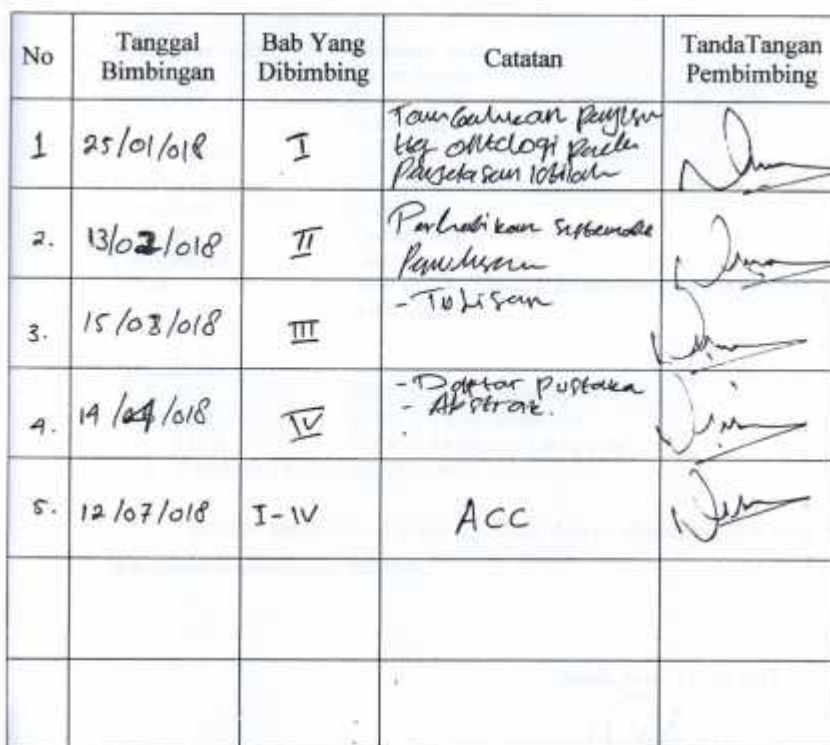 No
Tanggal Bimbingan
Bab Yang Dibimbing
Catatan
TandaTangan Pembimbing
1
25/01/018
I
Tambahkan
ttg ontologi pada
Penjelasan Istilah
2.
13/02/018
II
Perhatikan
Penulisan
3.
15/03/018
III
- Tulisan
4.
14/04/018
IV
- Daftar pustaka
- Abstrak.
5.
12/07/018
I-IV
ACC